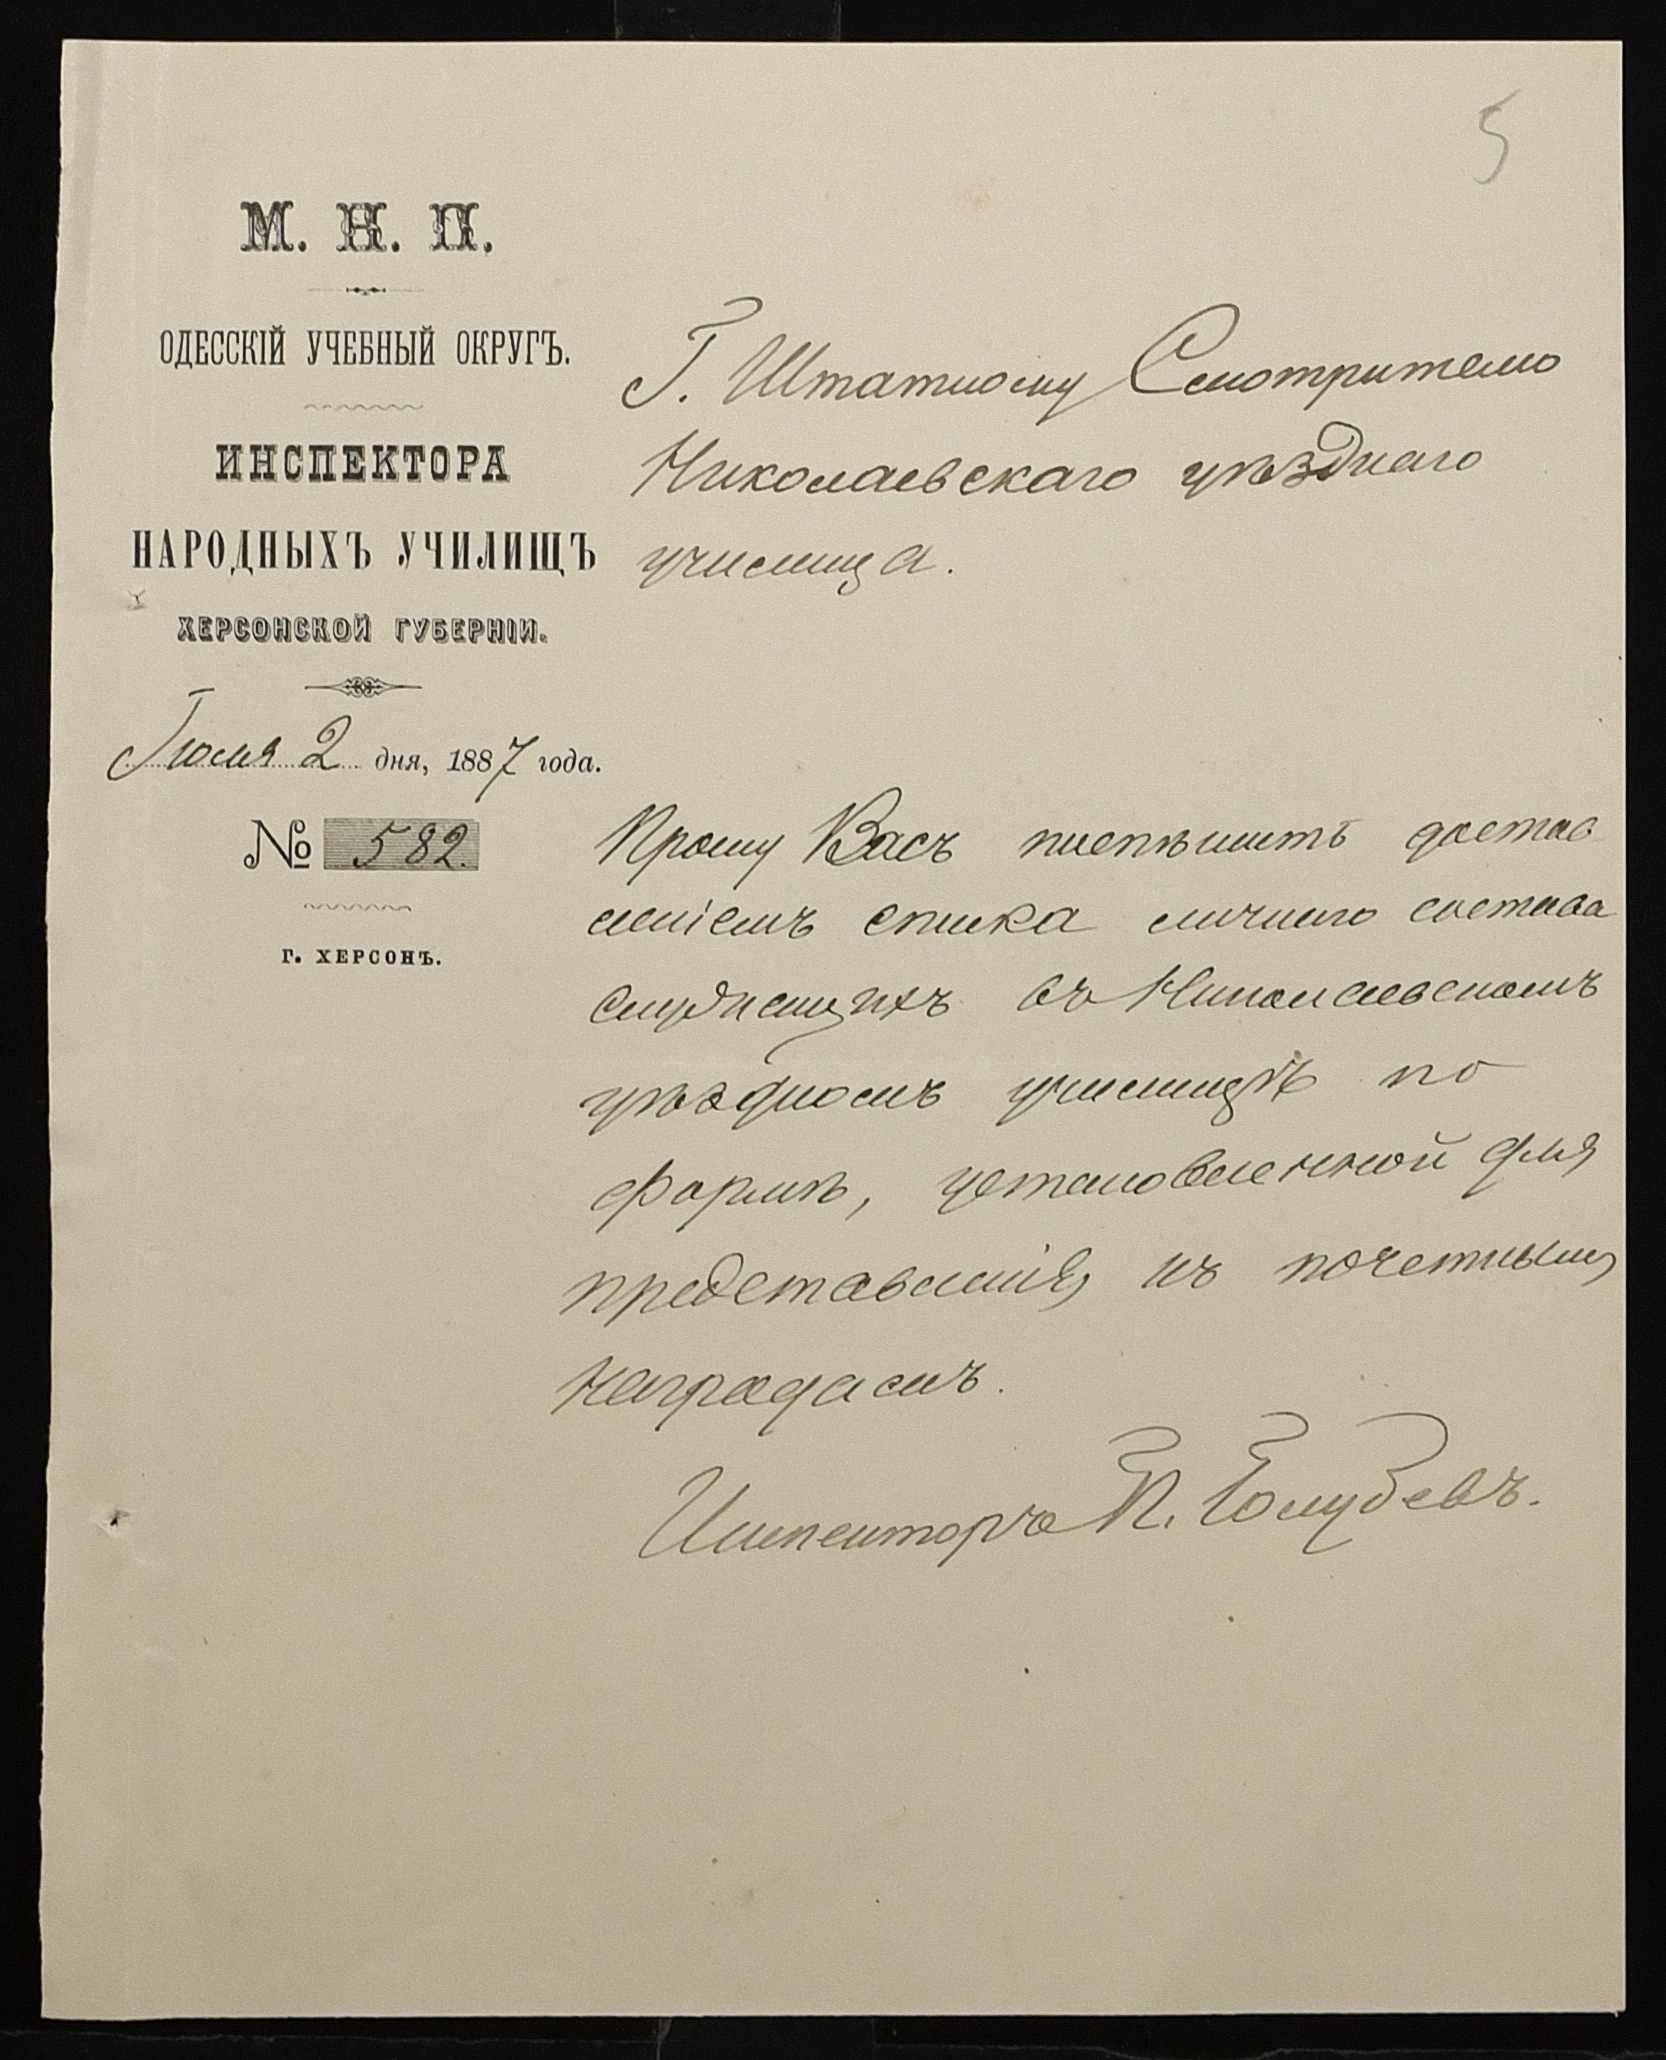 5
М. Н. П.
ОДЕССКІЙ УЧЕБНЫЙ ОКРУГЪ.
ИНСПЕКТОРА
НАРОДНЫХЪ УЧИЛИЩЪ
ХЕРСОНСКОЙ ГУБЕРНІИ.
Іюля 2 дня, 1887 года.
№ 582.
г. ХЕРСОНЪ.
Г. Штатному Смотрителю
Николаевскаго уѣзднаго
училища.
Прошу Васъ поспѣшить достав
леніемъ списка личнаго состава
служащихъ въ Николаевскомъ
уѣздномъ училищѣ по
формѣ, установленной для
представленія къ почетнымъ
наградамъ.
Инспекторъ П. Голубевъ.